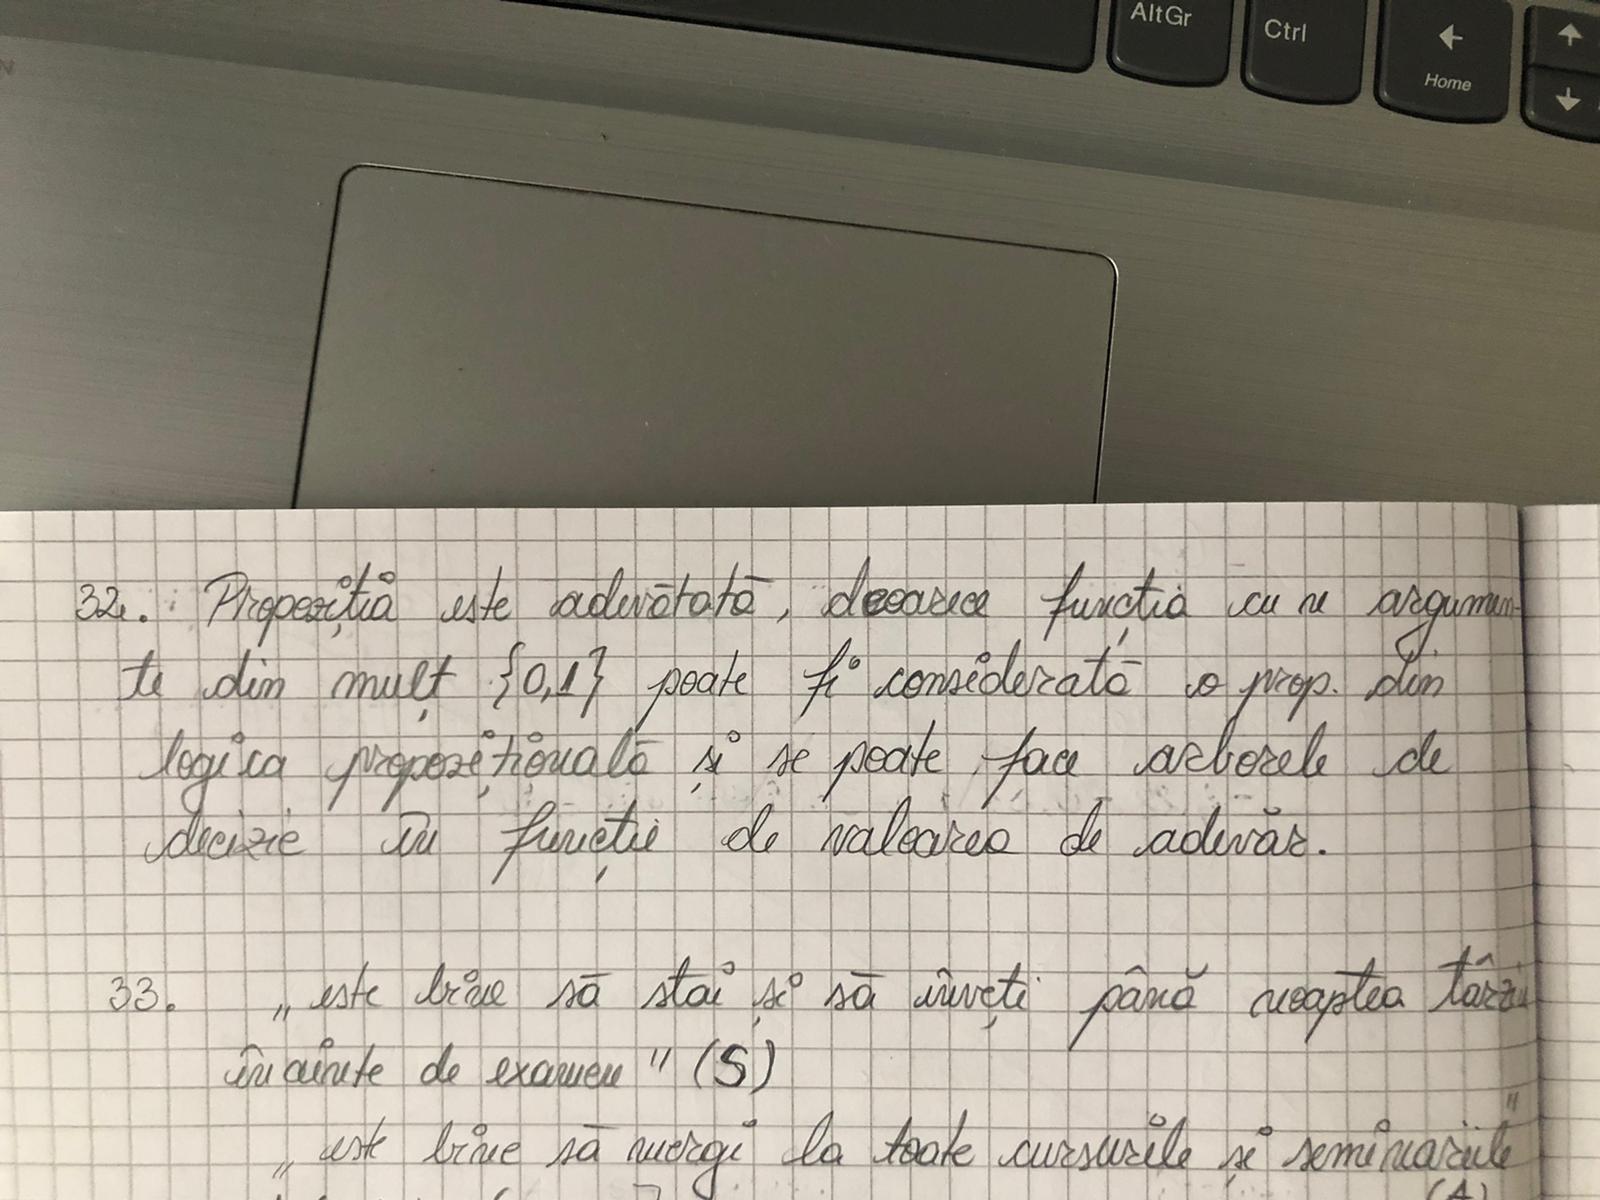 AltGr
Ctrl
Home
32. Propoziția este adevărată, deoarece funcția cu n argumen-
te din mulț {0,1} poate fi considerată o prop. din
logica propozițională și se poate face arborele de
decizie în funcție de valoarea de adevăr.
33. „este bine să stai și să înveți până noaptea târziu
înainte de examen" (S)
„este bine să mergi la toate cursurile și seminariile"
(A)